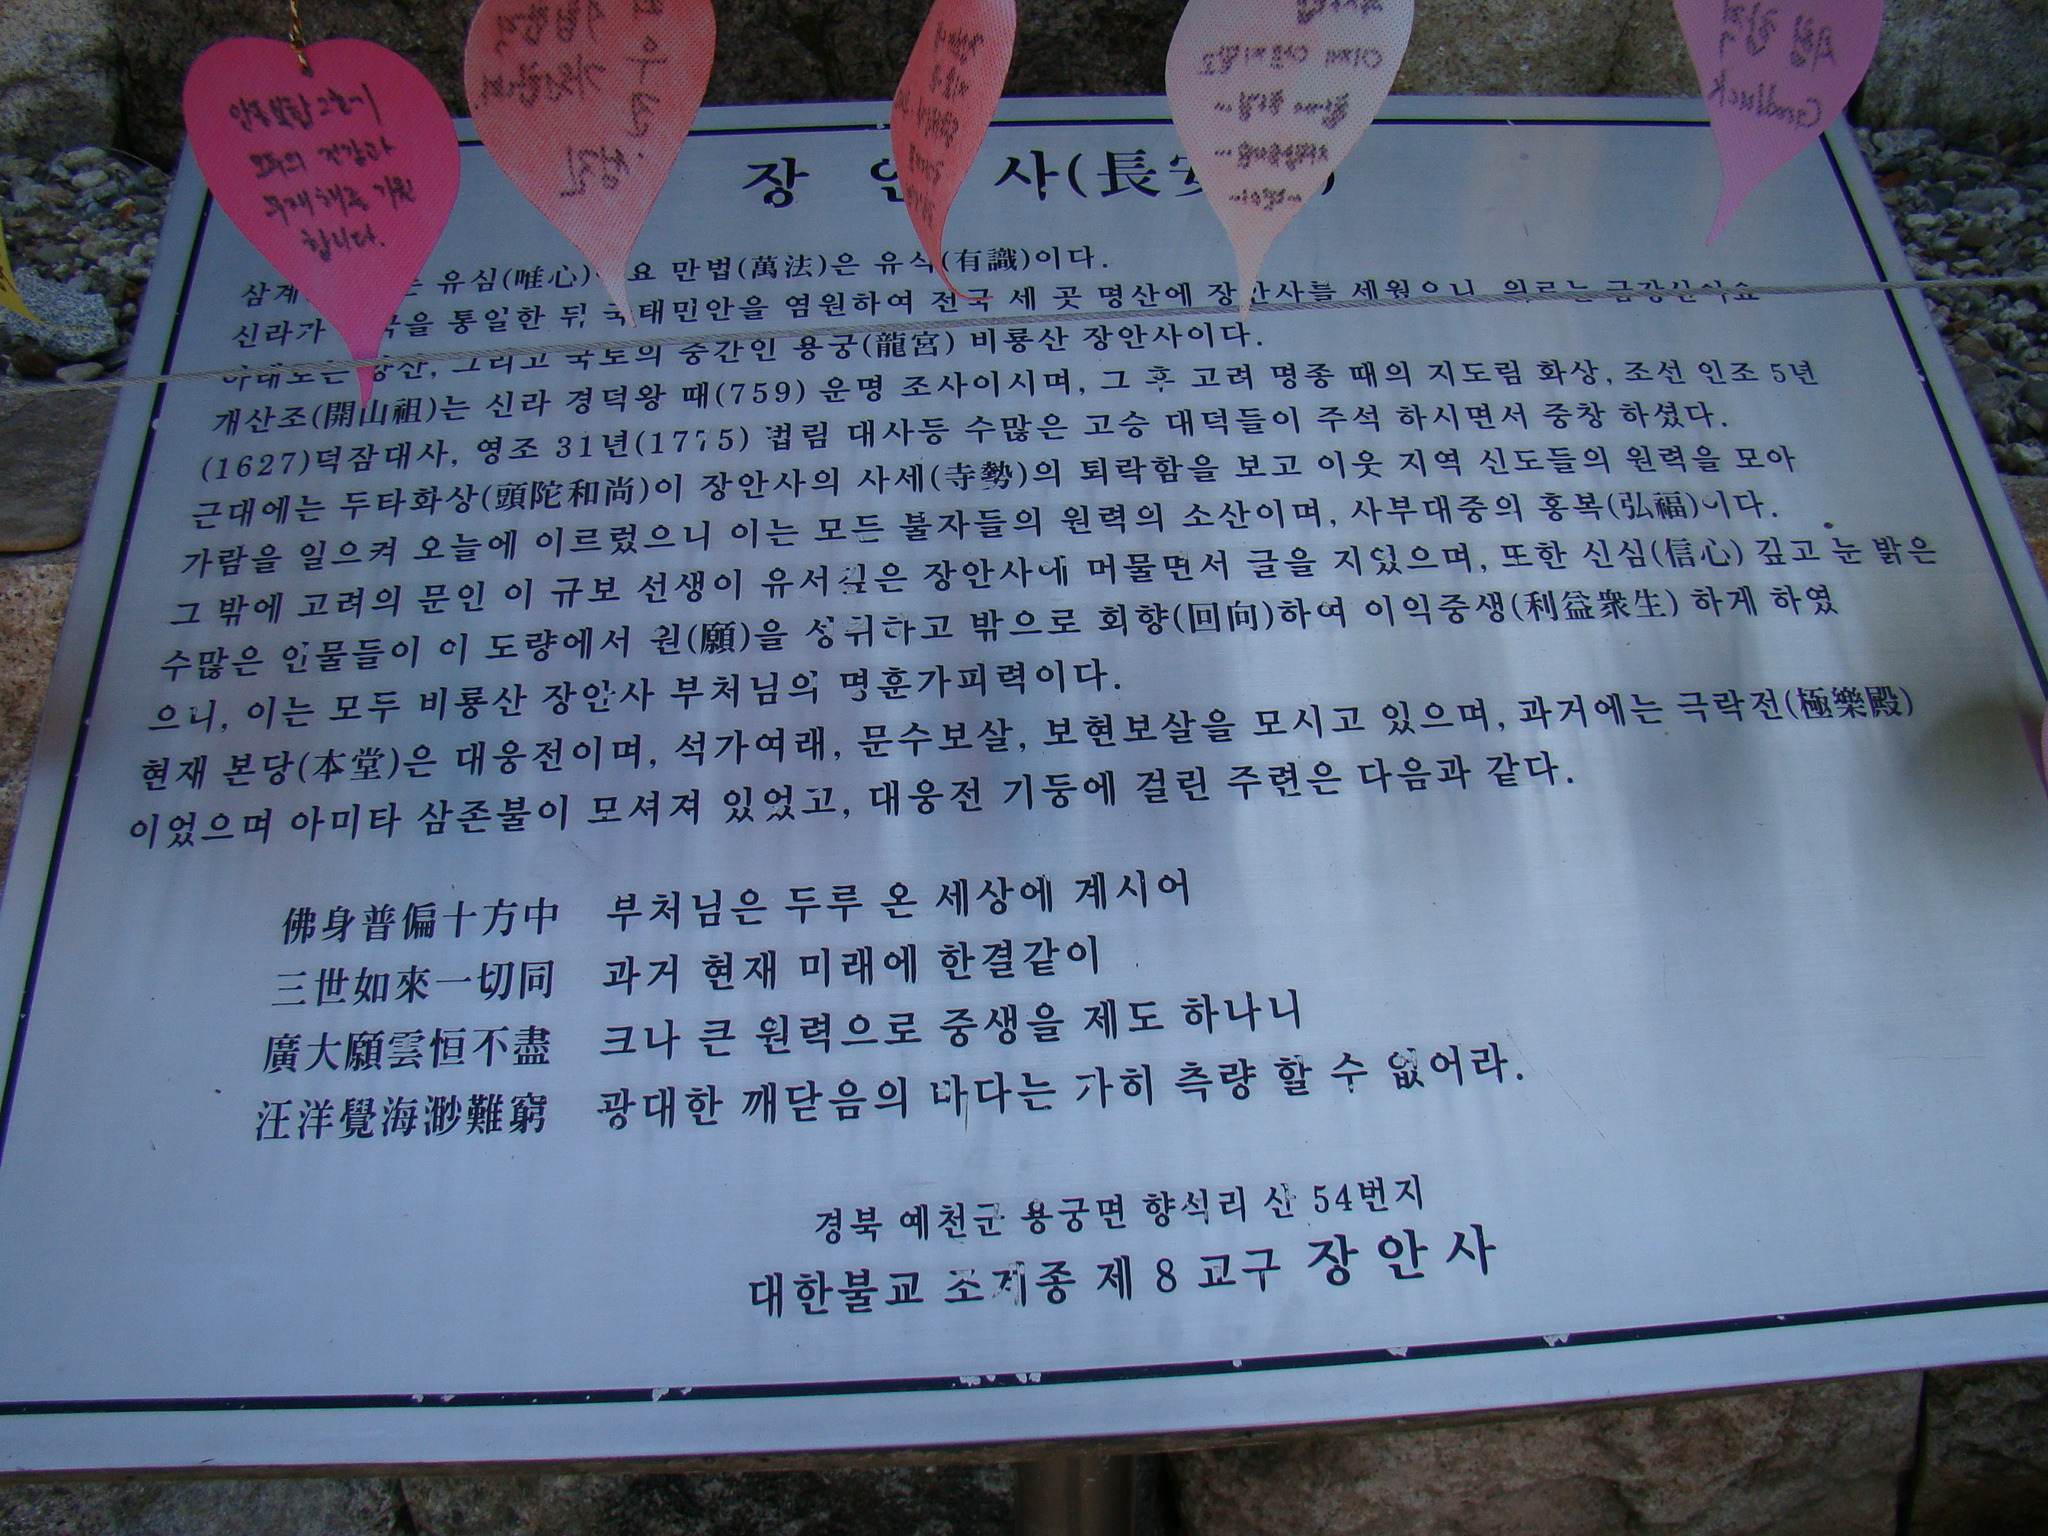 합니다.
Goodluck
장 사(長
유심(唯心) 요 만법(萬法)은 유식(有識)이다.
신라가 통일한 뒤 국태민안을 염원하여 전국 세 곳 명산에 장안사를 세웠으니, 위로는 금강산이요
아래로는 그리고 국토의 중간인 용궁(龍宮) 비룡산 장안사이다.
개산조(開山祖)는 신라 경덕왕 때(759) 운명 조사이시며, 그 후 고려 명종 때의 지도림 화상, 조선 인조 5년
(1627)덕잠대사, 영조 31년(1775) 법림 대사등 수많은 고승 대덕들이 주석 하시면서 중창 하셨다.
근대에는 두타화상(頭陀和尚)이 장안사의 사세(寺勢)의 퇴락함을 보고 이웃 지역 신도들의 원력을 모아
가람을 일으켜 오늘에 이르렀으니 이는 모든 불자들의 원력의 소산이며, 사부대중의 홍복(弘福)이다.
그 밖에 고려의 문인 이 규보 선생이 유서깊은 장안사에 머물면서 글을 지었으며, 또한 신심(信心) 깊고 눈 밝은
수많은 인물들이 이 도량에서 원(願)을 성취하고 밖으로 회향(回向)하여 이익중생(利益衆生) 하게 하였
으니, 이는 모두 비룡산 장안사 부처님의 명훈가피력이다.
현재 본당(本堂)은 대웅전이며, 석가여래, 문수보살, 보현보살을 모시고 있으며, 과거에는 극락전(極樂殿)
이었으며 아미타 삼존불이 모셔져 있었고, 대웅전 기둥에 걸린 주련은 다음과 같다.
佛身普偏十方中 부처님은 두루 온 세상에 계시어
三世如來一切同 과거 현재 미래에 한결같이
廣大願雲恒不盡 크나 큰 원력으로 중생을 제도 하나니
汪洋覺海渺難窮 광대한 깨닫음의 바다는 가히 측량 할 수 없어라.
경북 예천군 용궁면 향석리 산 54번지
대한불교 조계종 제 8 교구 장 안 사